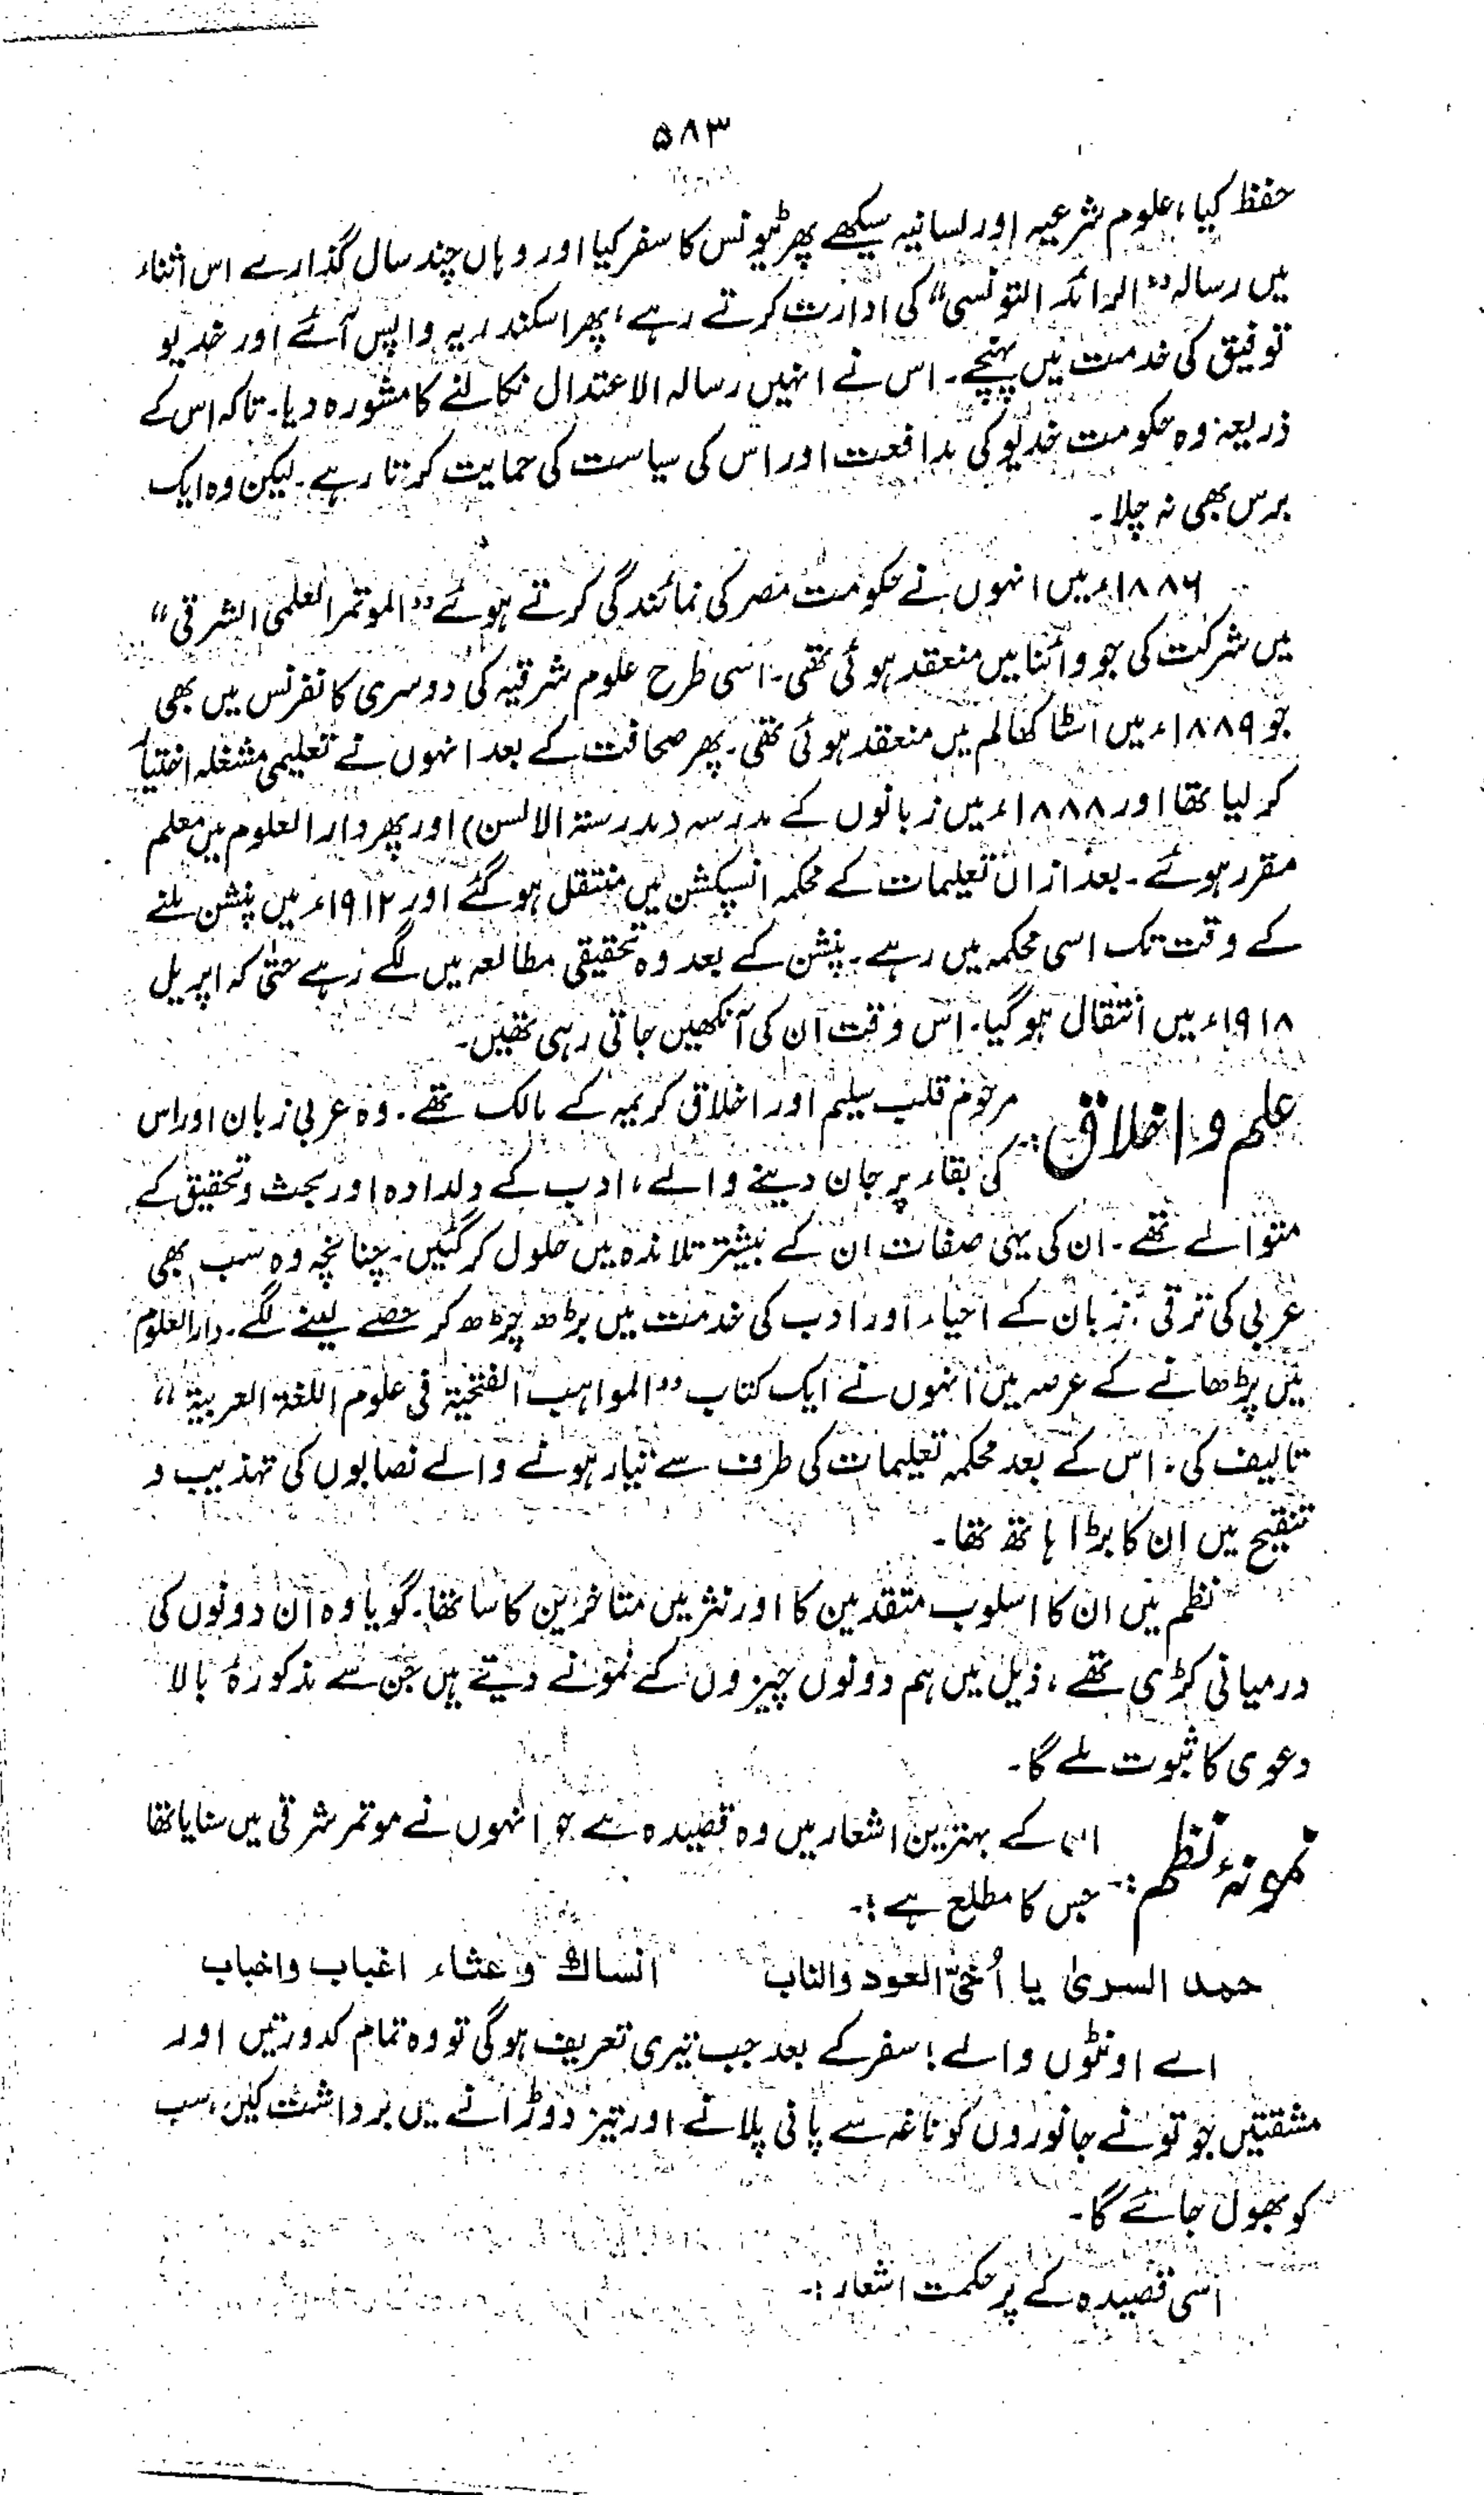 ۵۸۳
حفظ کیا، علوم شرعیہ اور لسانیہ سیکھے پھر ٹیونس کا سفر کیا اور وہاں چند سال گذارے اس اثناء
میں رسالہ "الرائد التونسی" کی ادارت کرتے رہے، پھر اسکندریہ واپس آئے اور خدیو
توفیق کی خدمت میں پہنچے۔ اس نے انہیں رسالہ الاعتدال نکالنے کا مشورہ دیا۔ تاکہ اس کے
ذریعہ وہ حکومت خدیو کی مدافعت اور اس کی سیاست کی حمایت کرتا رہے۔ لیکن وہ ایک
برس بھی نہ چلا۔
۱۸۸۶ء میں انہوں نے حکومت مصر کی نمائندگی کرتے ہوئے "الموتمر العلمی الشرقی"
میں شرکت کی جو وائنا میں منعقد ہوئی تھی۔ اسی طرح علوم شرقیہ کی دوسری کانفرنس میں بھی
جو ۱۸۸۹ء میں اسٹاکھالم میں منعقد ہوئی تھی۔ پھر صحافت کے بعد انہوں نے تعلیمی مشغلہ اختیار
کر لیا تھا اور ۱۸۸۸ء میں زبانوں کے مدرسہ (مدرستہ الالسن) اور پھر دارالعلوم میں معلم
مقرر ہوئے۔ بعد ازاں تعلیمات کے محکمہ انسپکشن میں منتقل ہو گئے اور ۱۹۱۲ء میں پنشن ملنے
کے وقت تک اسی محکمہ میں رہے۔ پنشن کے بعد وہ تحقیقی مطالعہ میں لگے رہے حتیٰ کہ اپریل
۱۹۱۸ء میں انتقال ہو گیا۔ اس وقت ان کی آنکھیں جاتی رہی تھیں۔
علم و اخلاق:۔ مرحوم قلب سلیم اور اخلاق کریمہ کے مالک تھے۔ وہ عربی زبان اور اس
کی بقاء پر جان دینے والے، ادب کے دلدادہ اور بحث و تحقیق کے
متوالے تھے۔ ان کی یہی صفات ان کے بیشتر تلامذہ میں حلول کر گئیں۔ چنانچہ وہ سب بھی
عربی کی ترقی، زبان کے احیاء اور ادب کی خدمت میں بڑھ چڑھ کر حصے لینے لگے۔ دارالعلوم
میں پڑھانے کے عرصہ میں انہوں نے ایک کتاب "المواہب الفتحیۃ فی علوم اللغۃ العربیۃ"
تالیف کی۔ اس کے بعد محکمہ تعلیمات کی طرف سے تیار ہونے والے نصابوں کی تہذیب و
تنقیح میں ان کا بڑا ہاتھ تھا۔
نظم میں ان کا اسلوب متقدمین کا اور نثر میں متاخرین کا سا تھا۔ گویا وہ ان دونوں کی
درمیانی کڑی تھے، ذیل میں ہم دونوں چیزوں کے نمونے دیتے ہیں جن سے مذکورۂ بالا
دعوی کا ثبوت ملے گا۔
نمونۂ نظم:۔ اس کے بہترین اشعار میں وہ قصیدہ ہے جو انہوں نے موتمر شرقی میں سنایا تھا
جس کا مطلع ہے:۔
حمد السریٰ یا اُخیّ العود والناب انساك وعثاء اغباب واخباب
اے اونٹوں والے! سفر کے بعد جب تیری تعریف ہوگی تو وہ تمام کدورتیں اور
مشقتیں جو تو نے جانوروں کو ناغہ سے پانی پلانے اور تیز دوڑانے میں برداشت کیں، سب
کو بھول جائے گا۔
اسی قصیدہ کے پر حکمت اشعار:۔